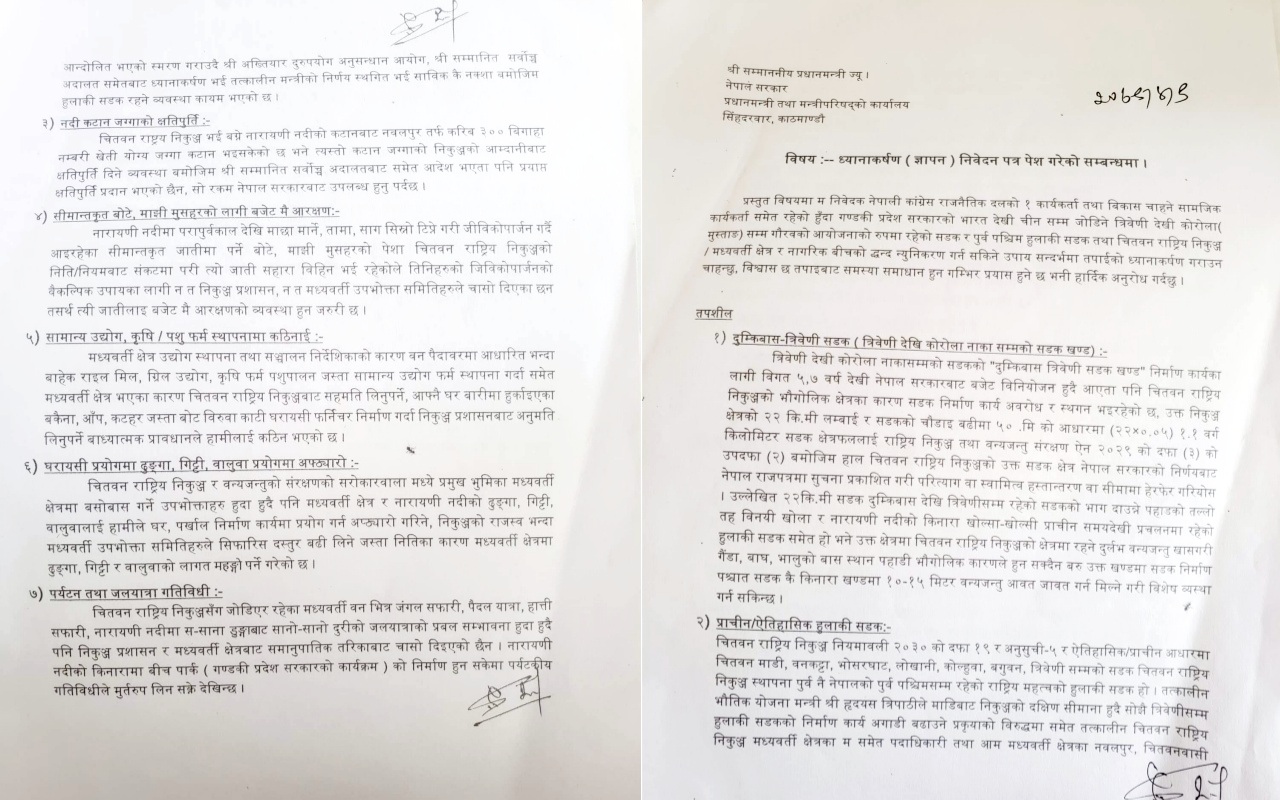 श्री सम्माननीय प्रधानमन्त्री ज्यू ।
नेपाल सरकार
प्रधानमन्त्री तथा मन्त्रीपरिषद्को कार्यालय
सिंहदरवार, काठमाण्डौ
विषय :-- ध्यानाकर्षण ( ज्ञापन ) निवेदन पत्र पेश गरेको सम्बन्धमा ।
प्रस्तुत विषयमा म निवेदक नेपाली कांग्रेस राजनैतिक दलको १ कार्यकर्ता तथा बिकास चाहने सामजिक
कार्यकर्ता समेत रहेको हुँदा गण्डकी प्रदेश सरकारको भारत देखी चीन सम्म जोडिने त्रिवेणी देखी कोरोला(
मुस्ताङ) सम्म गौरवको आयोजनाको रुपमा रहेको सडक र पुर्व पश्चिम हुलाकी सडक तथा चितवन राष्ट्रिय निकुञ्ज
/ मध्यवर्ती क्षेत्र र नागरिक बीचको द्वन्द न्युनिकरण गर्न सकिने उपाय सन्दर्भमा तपाईको ध्यानाकर्षण गराउन
चाहन्छु, विश्वास छ तपाइबाट समस्या समाधान हुन गम्भिर प्रयास हुने छ भनी हार्दिक अनुरोध गर्दछु ।
तपशील
१) दुम्किबास-त्रिवेणी सडक ( त्रिवेणी देखि कोरोला नाका सम्मको सडक खण्ड) :-
त्रिवेणी देखी कोरोला नाकासम्मको सडकको "दुम्किबास त्रिवेणी सडक खण्ड" निर्माण कार्यका
लागी विगत ५,७ बर्ष देखी नेपाल सरकारबाट बजेट विनियोजन हुदै आएता पनि चितवन राष्ट्रिय
निकुञ्जको भौगोलिक क्षेत्रका कारण सडक निर्माण कार्य अवरोध र स्थगन भइरहेको छ, उक्त निकुञ्ज
क्षेत्रको २२ कि.मी लम्बाई र सडकको चौडाइ बढीमा ५० .मि को आधारमा (२२×०.०५) १.१ बर्ग
किलोमिटर सडक क्षेत्रफललाई राष्ट्रिय निकुञ्ज तथा वन्यजन्तु संरक्षण ऐन २०२९ को दफा (३) को
उपदफा (२) बमोजिम हाल चितवन राष्ट्रिय निकुञ्जको उक्त सडक क्षेत्र नेपाल सरकारको निर्णयबाट
नेपाल राजपत्रमा सुचना प्रकाशित गरी परित्याग वा स्वामित्व हस्तान्तरण वा सीमामा हेरफेर गरियोस
। उल्लेखित २२कि.मी सडक दुम्किबास देखि त्रिवेणीसम्म रहेको सडकको भाग दाउन्ने पहाडको तल्लो
तह विनयी खोला र नारायणी नदीको किनारा खोल्सा-खोल्सी प्राचीन समयदेखी प्रचलनमा रहेको
हुलाकी सडक समेत हो भने उक्त क्षेत्रमा चितवन राष्ट्रिय निकुञ्जको क्षेत्रमा रहने दुर्लभ वन्यजन्तु खासगरी
गैंडा, बाघ, भालुको बास स्थान पहाडी भौगोलिक कारणले हुन सक्दैन बरु उक्त खण्डमा सडक निर्माण
पश्चात सडक कै किनारा खण्डमा १०-१५ मिटर वन्यजन्तु आवत जावत गर्न मिल्ने गरी विशेष व्यस्था
गर्न सकिन्छ ।
२) प्राचीन/ऐतिहासिक हुलाकी सडक:-
चितवन राष्ट्रिय निकुञ्ज नियमावली २०३० को दफा १९ र अनुसुची-५ र ऐतिहासिक/प्राचीन आधारमा
चितवन माडी, वनकट्टा, भोसरघाट, लोखानी, कोल्हुवा, बगुवन, त्रिवेणी सम्मको सडक चितवन राष्ट्रिय
निकुञ्ज स्थापना पुर्व नै नेपालको पुर्व पश्चिमसम्म रहेको राष्ट्रिय महत्वको हुलाकी सडक हो । तत्कालीन
भौतिक योजना मन्त्री श्री हृदयस त्रिपाठीले माडिबाट निकुञ्जको दक्षिण सीमाना हुदै सोझै त्रिवेणीसम्म
हुलाकी सडकको निर्माण कार्य अगाडी बढाउने प्रकृयाको विरुद्धमा समेत तत्कालीन चितवन राष्ट्रिय
निकुञ्ज मध्यवर्ती क्षेत्रका म समेत पदाधिकारी तथा आम मध्यवर्ती क्षेत्रका नवलपुर, चितवनवासी
आन्दोलित भएको स्मरण गराउदै श्री अख्तियार दुरुपयोग अनुसन्धान आयोग, श्री सम्मानित सर्वोच्च
अदालत समेतबाट ध्यानाकर्षण भई तत्कालीन मन्त्रीको निर्णय स्थगित भई साविक कै नक्शा बमोजिम
हुलाकी सडक रहने व्यवस्था कायम भएको छ ।
३) नदी कटान जग्गाको क्षतिपुर्ति :-
चितवन राष्ट्रिय निकुञ्ज भई बग्ने नारायणी नदीको कटानबाट नवलपुर तर्फ करिब ३०० बिगाहा
नम्बरी खेती योग्य जग्गा कटान भइसकेको छ भने त्यस्तो कटान जग्गाको निकुञ्जको आम्दानीबाट
क्षतिपुर्ति दिने व्यवस्था बमोजिम श्री सम्मानित सर्वोच्च अदालतबाट समेत आदेश भएता पनि प्रयाप्त
क्षतिपुर्ति प्रदान भएको छैन, सो रकम नेपाल सरकारबाट उपलब्ध हुनु पर्दछ ।
४) सीमान्तकृत बोटे, माझी मुसहरको लागी बजेट मै आरक्षण:-
नारायणी नदीमा परापुर्वकाल देखि माछा मार्ने, तामा, साग सिस्नो टिप्ने गरी जीविकोपार्जन गर्दै
आइरहेका सिमान्तकृत जातीमा पर्ने बोटे, माझी मुसहरको पेशा चितवन राष्ट्रिय निकुञ्जको
निति/नियमबाट संकटमा परी त्यो जाती सहारा विहिन भई रहेकोले तिनिहरुको जिविकोपार्जनको
बैकल्पिक उपायका लागी न त निकुञ्ज प्रशासन, न त मध्यवर्ती उपभोक्ता समितिहरुले चासो दिएका छन
तसर्थ त्यी जातीलाइ बजेट मै आरक्षणको व्यवस्था हुन जरुरी छ ।
५) सामान्य उद्योग, कृषि / पशु फर्म स्थापनामा कठिनाई :-
मध्यवर्ती क्षेत्र उद्योग स्थापना तथा सञ्चालन निर्देशिकाको कारण बन पैदावरमा आधारित भन्दा
बाहेक राइल मिल, ग्रिल उद्योग, कृषि फर्म पशुपालन जस्ता सामान्य उद्योग फर्म स्थापना गर्दा समेत
मध्यवर्ती क्षेत्र भएका कारण चितवन राष्ट्रिय निकुञ्जबाट सहमति लिनुपर्ने, आफ्नै घर बारीमा हुर्काइएका
बकैना, आँप, कटहर जस्ता बोट विरुवा काटी घरायसी फर्निचर निर्माण गर्दा निकुञ्ज प्रशासनबाट अनुमति
लिनुपर्ने बाध्यात्मक प्रावधानले हामीलाई कठिन भएको छ ।
६) घरायसी प्रयोगमा ढुङ्गा, गिट्टी, वालुवा प्रयोगमा अफ्ठ्यारो :-
चितवन राष्ट्रिय निकुञ्ज र वन्यजन्तुको संरक्षणको सरोकारवाला मध्ये प्रमुख भुमिका मध्यवर्ती
क्षेत्रमा बसोबास गर्ने उपभोक्ताहरु हुदा हुदै पनि मध्यवर्ती क्षेत्र र नारायणी नदीको ढुङ्गा, गिट्टी,
वालुवालाई हामीले घर, पर्खाल निर्माण कार्यमा प्रयोग गर्न अप्ठ्यारो गरिने, निकुञ्जको राजस्व भन्दा
मध्यवर्ती उपभोक्ता समितिहरुले सिफारिस दस्तुर बढी लिने जस्ता नितिका कारण मध्यवर्ती क्षेत्रमा
ढुङ्गा, गिट्टी र वालुवाको लागत महङ्गो पर्ने गरेको छ ।
७) पर्यटन तथा जलयात्रा गतिविधी :-
चितवन राष्ट्रिय निकुञ्जसँग जोडिएर रहेका मध्यवर्ती वन भित्र जंगल सफारी, पैदल यात्रा, हात्ती
सफारी, नारायणी नदीमा स-साना डुङ्गाबाट सानो-सानो दुरीको जलयात्राको प्रबल सम्भावना हुदा हुदै
पनि निकुञ्ज प्रशासन र मध्यवर्ती क्षेत्रबाट समानुपातिक तरिकाबाट चासो दिइएको छैन । नारायणी
नदीको किनारामा बीच पार्क ( गण्डकी प्रदेश सरकारको कार्यक्रम ) को निर्माण हुन सकेमा पर्यटकीय
गतिविधीले मुर्तरुप लिन सक्ने देखिन्छ ।